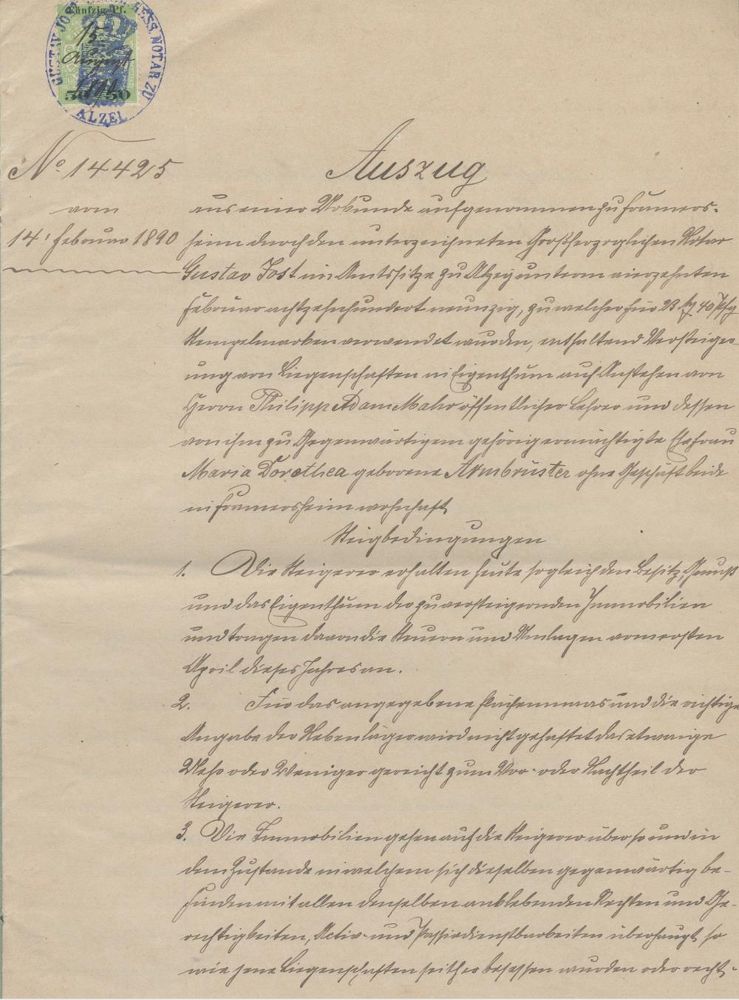 Fünfzig Pf.
GUSTAV JOST GR. HESS. NOTAR ZU
ALZEI
15
August
50 50
No 14425
vom
14. Februar 1890
Auszug
aus einer Urkunde aufgenommen zu Framers-
heim durch den unterzeichneten Großherzoglichen Notar
Gustav Jost im Amtssitze zu Alzey unterm vierzehnten
Februar achtzehnhundert neunzig, zu welcher für 28 M 40 Pfg
Stempelmarken verwendet wurden, enthaltend Versteiger-
ung von Liegenschaften in Eigenthum auf Anstehen von
Herrn Philipp Adam Mahr öffentlicher Lehrer und dessen
von ihm zu Gegenwärtigem gehörig ermächtigte Ehefrau
Maria Dorothea geborene Armbrüster ohne Geschäft beide
in Framersheim wohnhaft
Steigbedingungen
1. Die Steigerer erhalten heute sogleich den Besitz, Genuß
und das Eigenthum der zu versteigernden Immobilien
und tragen davon die Steuern und Umlagen vom ersten
April dieses Jahres an.
2. Für das angegebene Flächenmaas und die richtige
Angabe der Nebenläger wird nicht gehaftet das etwaige
Mehr oder Weniger gereicht zum Vor- oder Nachtheil der
Steigerer.
3. Die Immobilien gehen auf die Steigerer über so und in
dem Zustande in welchem sich dieselben gegenwärtig be-
finden mit allen denselben anklebenden Rechten und Ge-
rechtigkeiten, Activ- und Passivdienstbarkeiten überhaupt so
wie jene Liegenschaften seither besessen wurden oder recht-